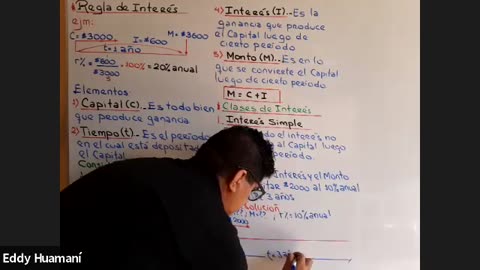 Regla de Interés
ejm:
C=$3000 I=$600 M=$3600
t=1año
r%= $600 ·100% = 20% anual
$3000
Elementos
1) Capital (C)._ Es todo bien
que produce ganancia
2) Tiempo(t)._ Es el periodo
en el cual está deposita
el Capital
4) Interés (I)._ Es la
ganancia que produce
el Capital luego de
cierto período
5) Monto (M)._ Es en lo
que se convierte el Capital
luego de cierto período
M = C + I
Clases de Interés
1. Interés Simple
do el interés no
al Capital luego
período.
interés y el Monto
tar $2000 al 10% anual
3 años
Solución
r%=10% anual
2000
t=3
Eddy Huamaní